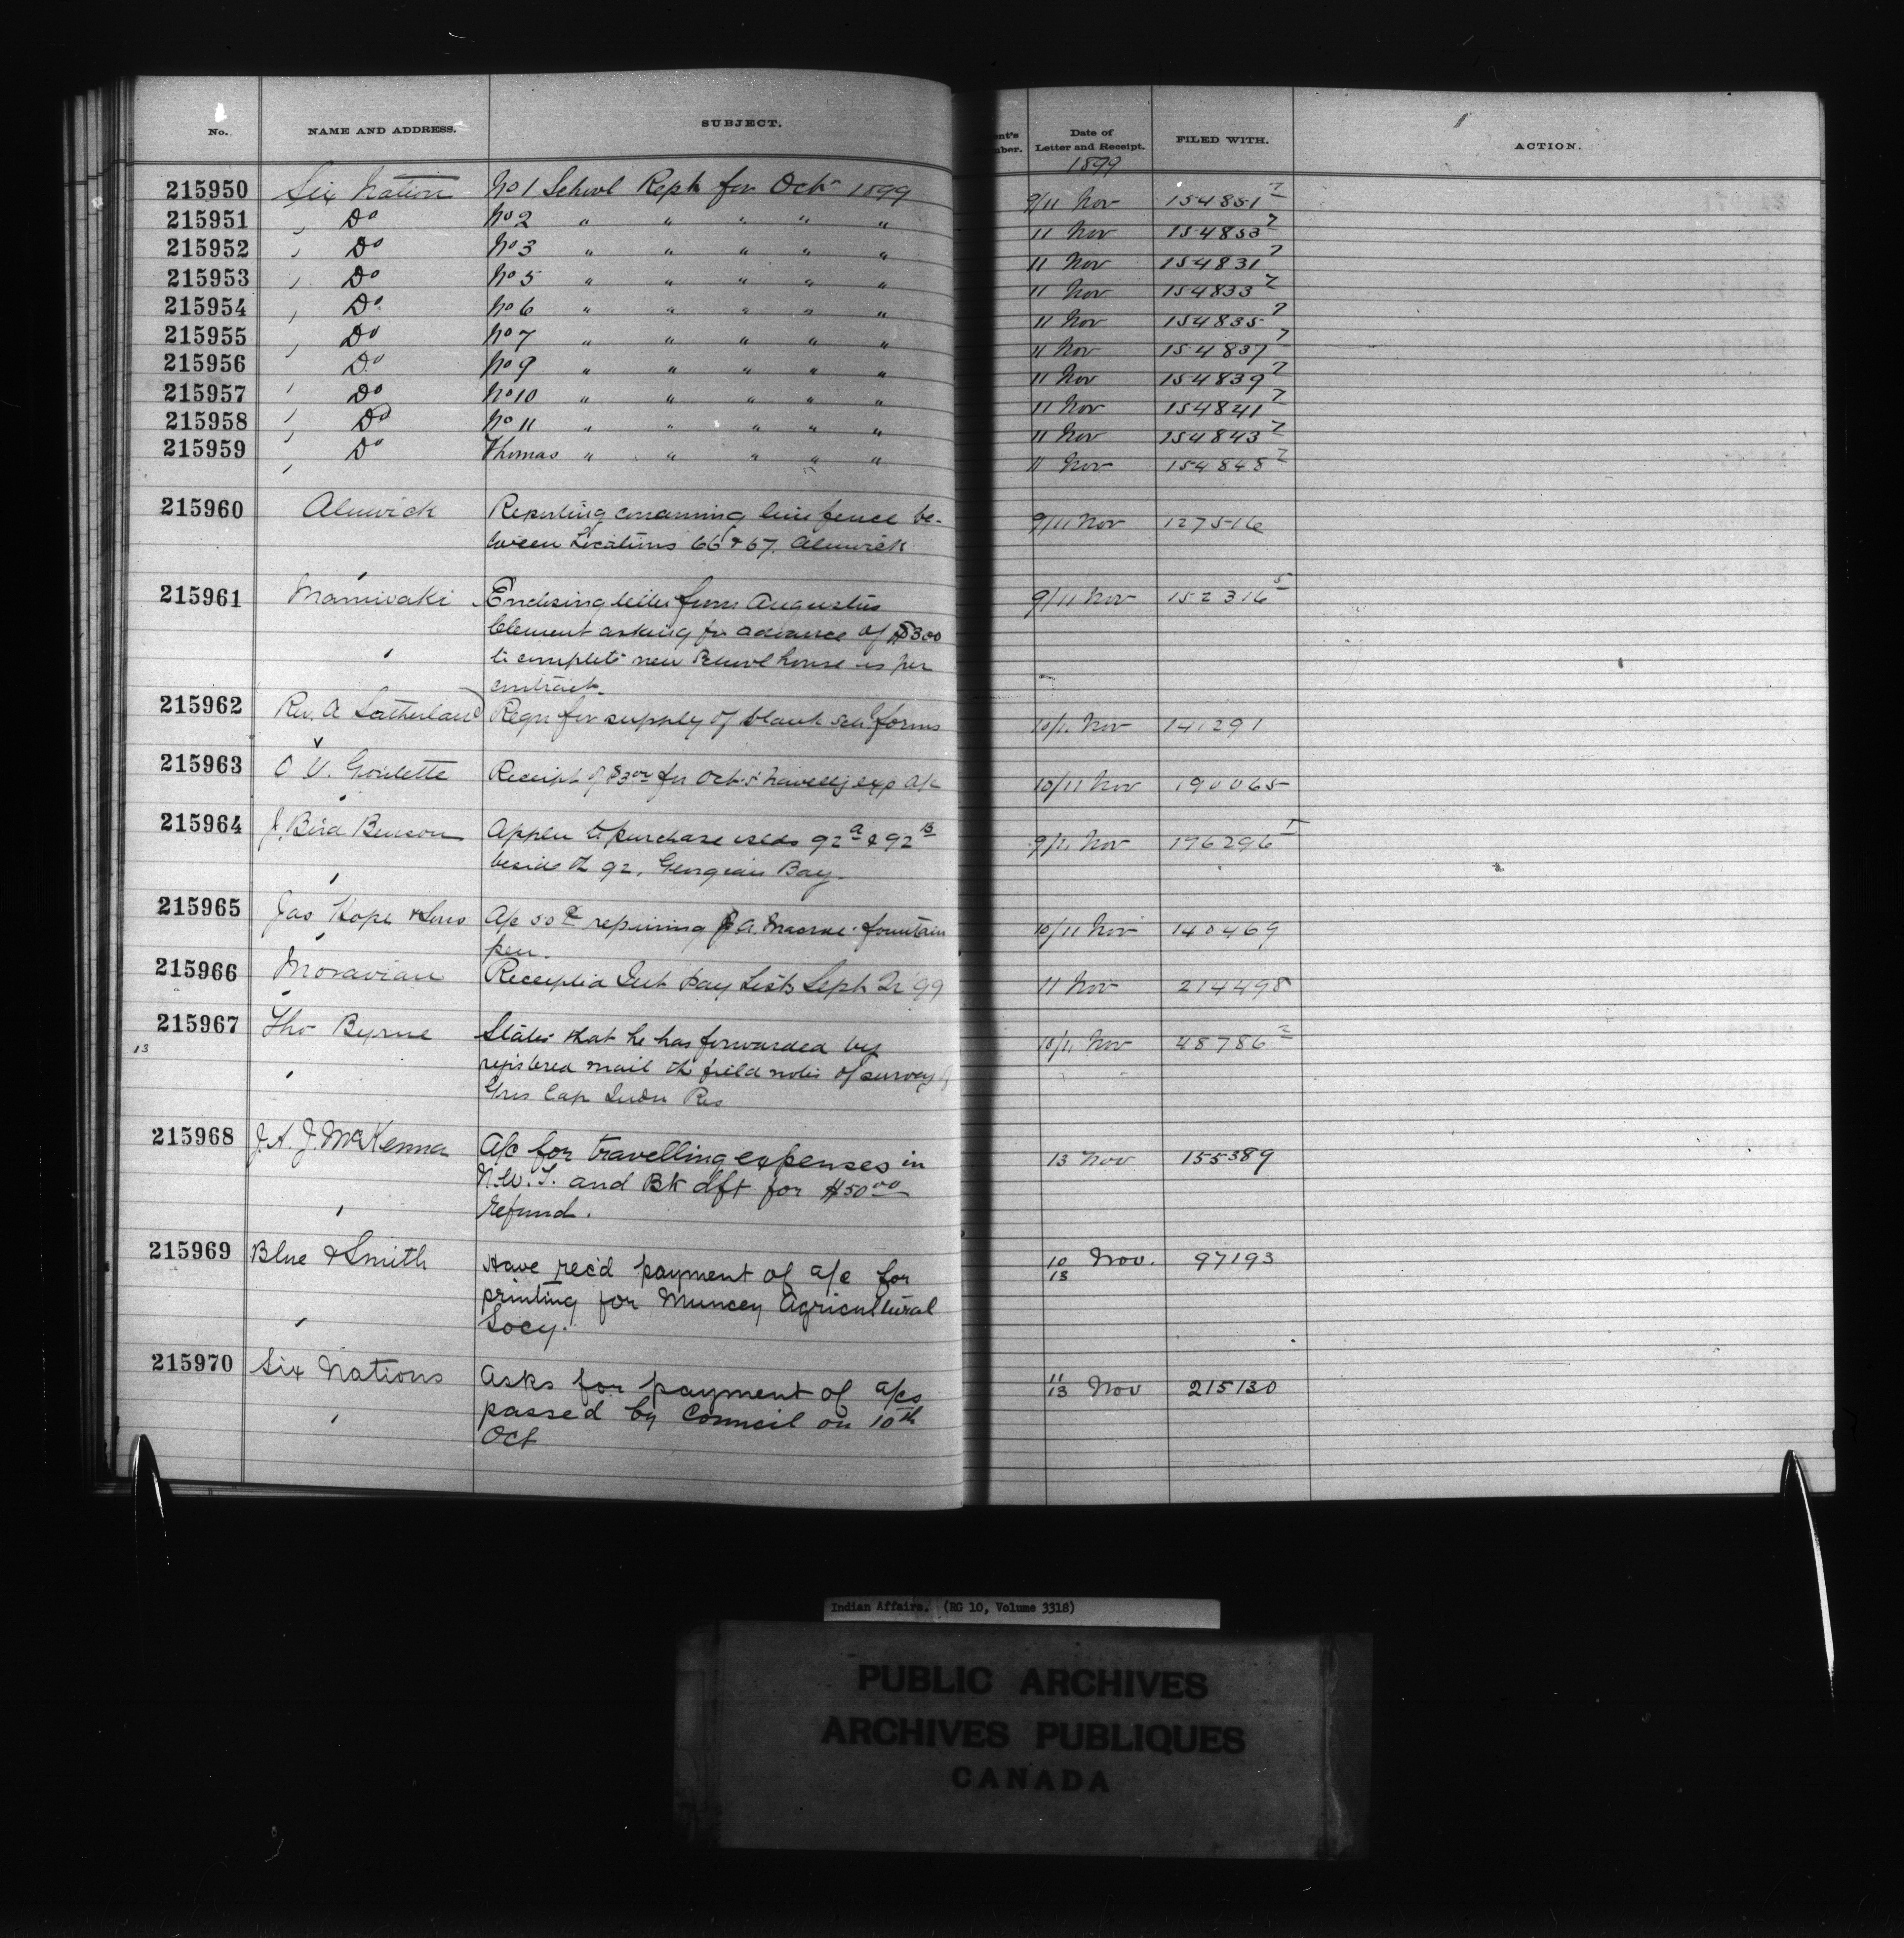 No. NAME AND ADDRESS. SUBJECT. Date of Letter and Receipt. FILED WITH. ACTION.
1899
215950 Six Nation No 1 School Rept for Oct 1899 9/11 Nov 154851 7
215951 Do No 2 " " " " " 11 Nov 154853 7
215952 Do No 3 " " " " " 11 Nov 154831 7
215953 Do No 5 " " " " " 11 Nov 154833 7
215954 Do No 6 " " " " " 11 Nov 154835 7
215955 Do No 7 " " " " " 11 Nov 154837 7
215956 Do No 9 " " " " " 11 Nov 154839 7
215957 Do No 10 " " " " " 11 Nov 154841 7
215958 Do No 11 " " " " " 11 Nov 154843 7
215959 Do Thomas " " " " " 11 Nov 154848 7
215960 Alnwick Reporting concerning line fence be- 9/11 Nov 127516
tween Locations 66 & 67, Alnwick
215961 Maniwaki Enclosing letter from Augustus 9/11 Nov 152316 5
Clement asking for advance of $300
to complete new School house as per
contract.
215962 Rev. A Sutherland Reqn for supply of blank forms 10/11 Nov 141291
215963 O V. Goulette Receipt of for Oct travellg exp a/c 10/11 Nov 190065
215964 J. Bird Benson Appln to purchase islds 92 A & 92 B 9/11 Nov 176296
beside 92, Georgian Bay.
215965 Jas Hope & Sons A/c 50 c repairing fountain 10/11 Nov 140469
pen.
215966 Moravian Receipted Int Pay Lists Sept 99 11 Nov 214498
215967 Tho Byrne States that he has forwarded by 10/11 Nov 48786 2
13
registered mail the field notes of survey of
Gros Cap Indn Res
215968 J. A. J. McKenna A/c for travelling expenses in 13 Nov 155389
N.W.T. and Bk dft for $50 00
refund.
215969 Blue & Smith Have rec'd payment of a/c for 10/13 Nov. 97193
printing for Muncey Agricultural
Socy.
215970 Six Nations Asks for payment of a/cs 11/13 Nov 215130
passed by Council on 10th
Oct
Indian Affairs. (RG 10, Volume 3318)
PUBLIC ARCHIVES
ARCHIVES PUBLIQUES
CANADA